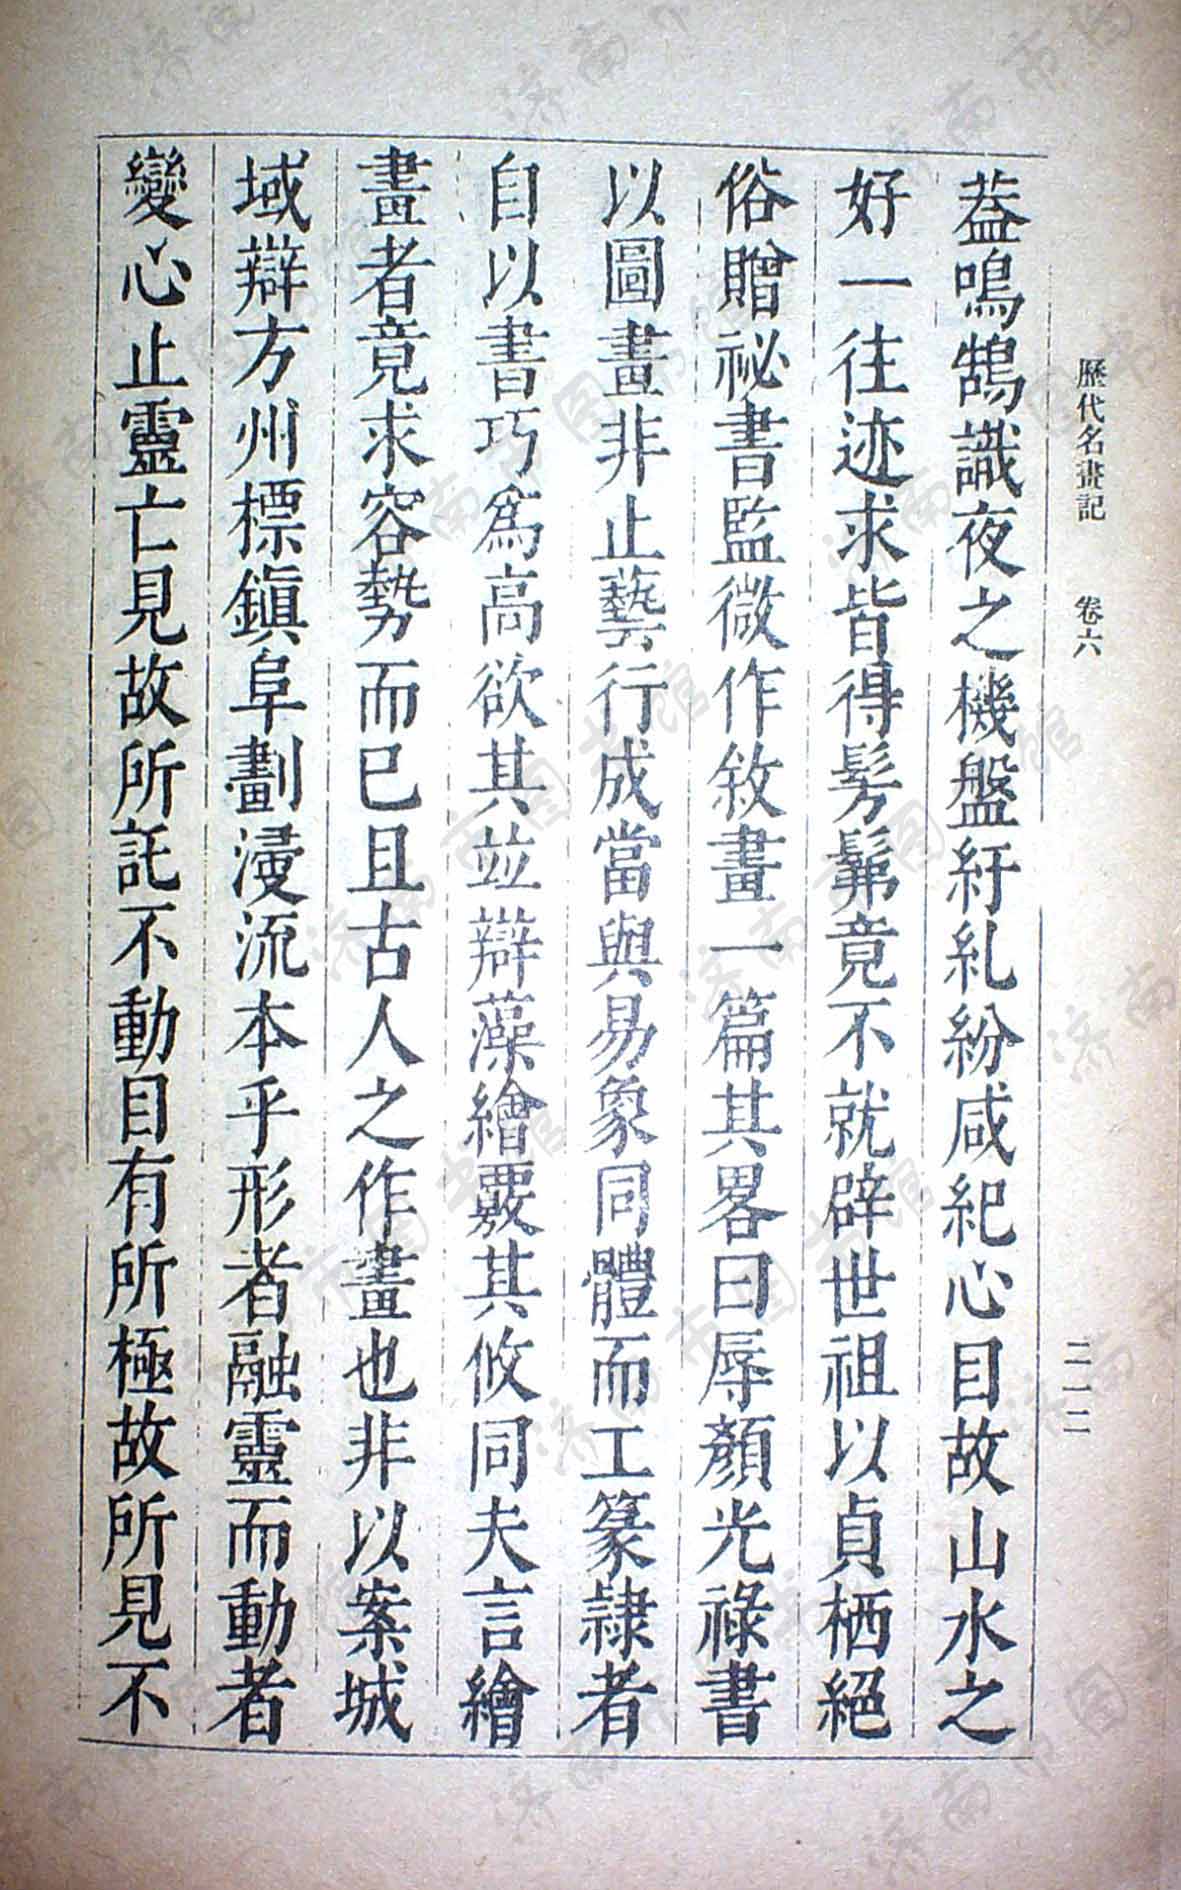 歷代名畫記　卷六　二一二
葢鳴鵠識夜之機盤紆糺紛咸紀心目故山水之
好一往迹求皆得髣髴竟不就辟世祖以貞栖絕
俗贈祕書監微作敘畫一篇其畧曰辱顏光祿書
以圖畫非止藝行成當與易象同體而工篆隷者
自以書巧爲高欲其竝辯藻繪覈其攸同夫言繪
畫者竟求容勢而已且古人之作畫也非以案城
域辯方州標鎭阜劃浸流本乎形者融靈而動者
變心止靈亡見故所託不動目有所極故所見不